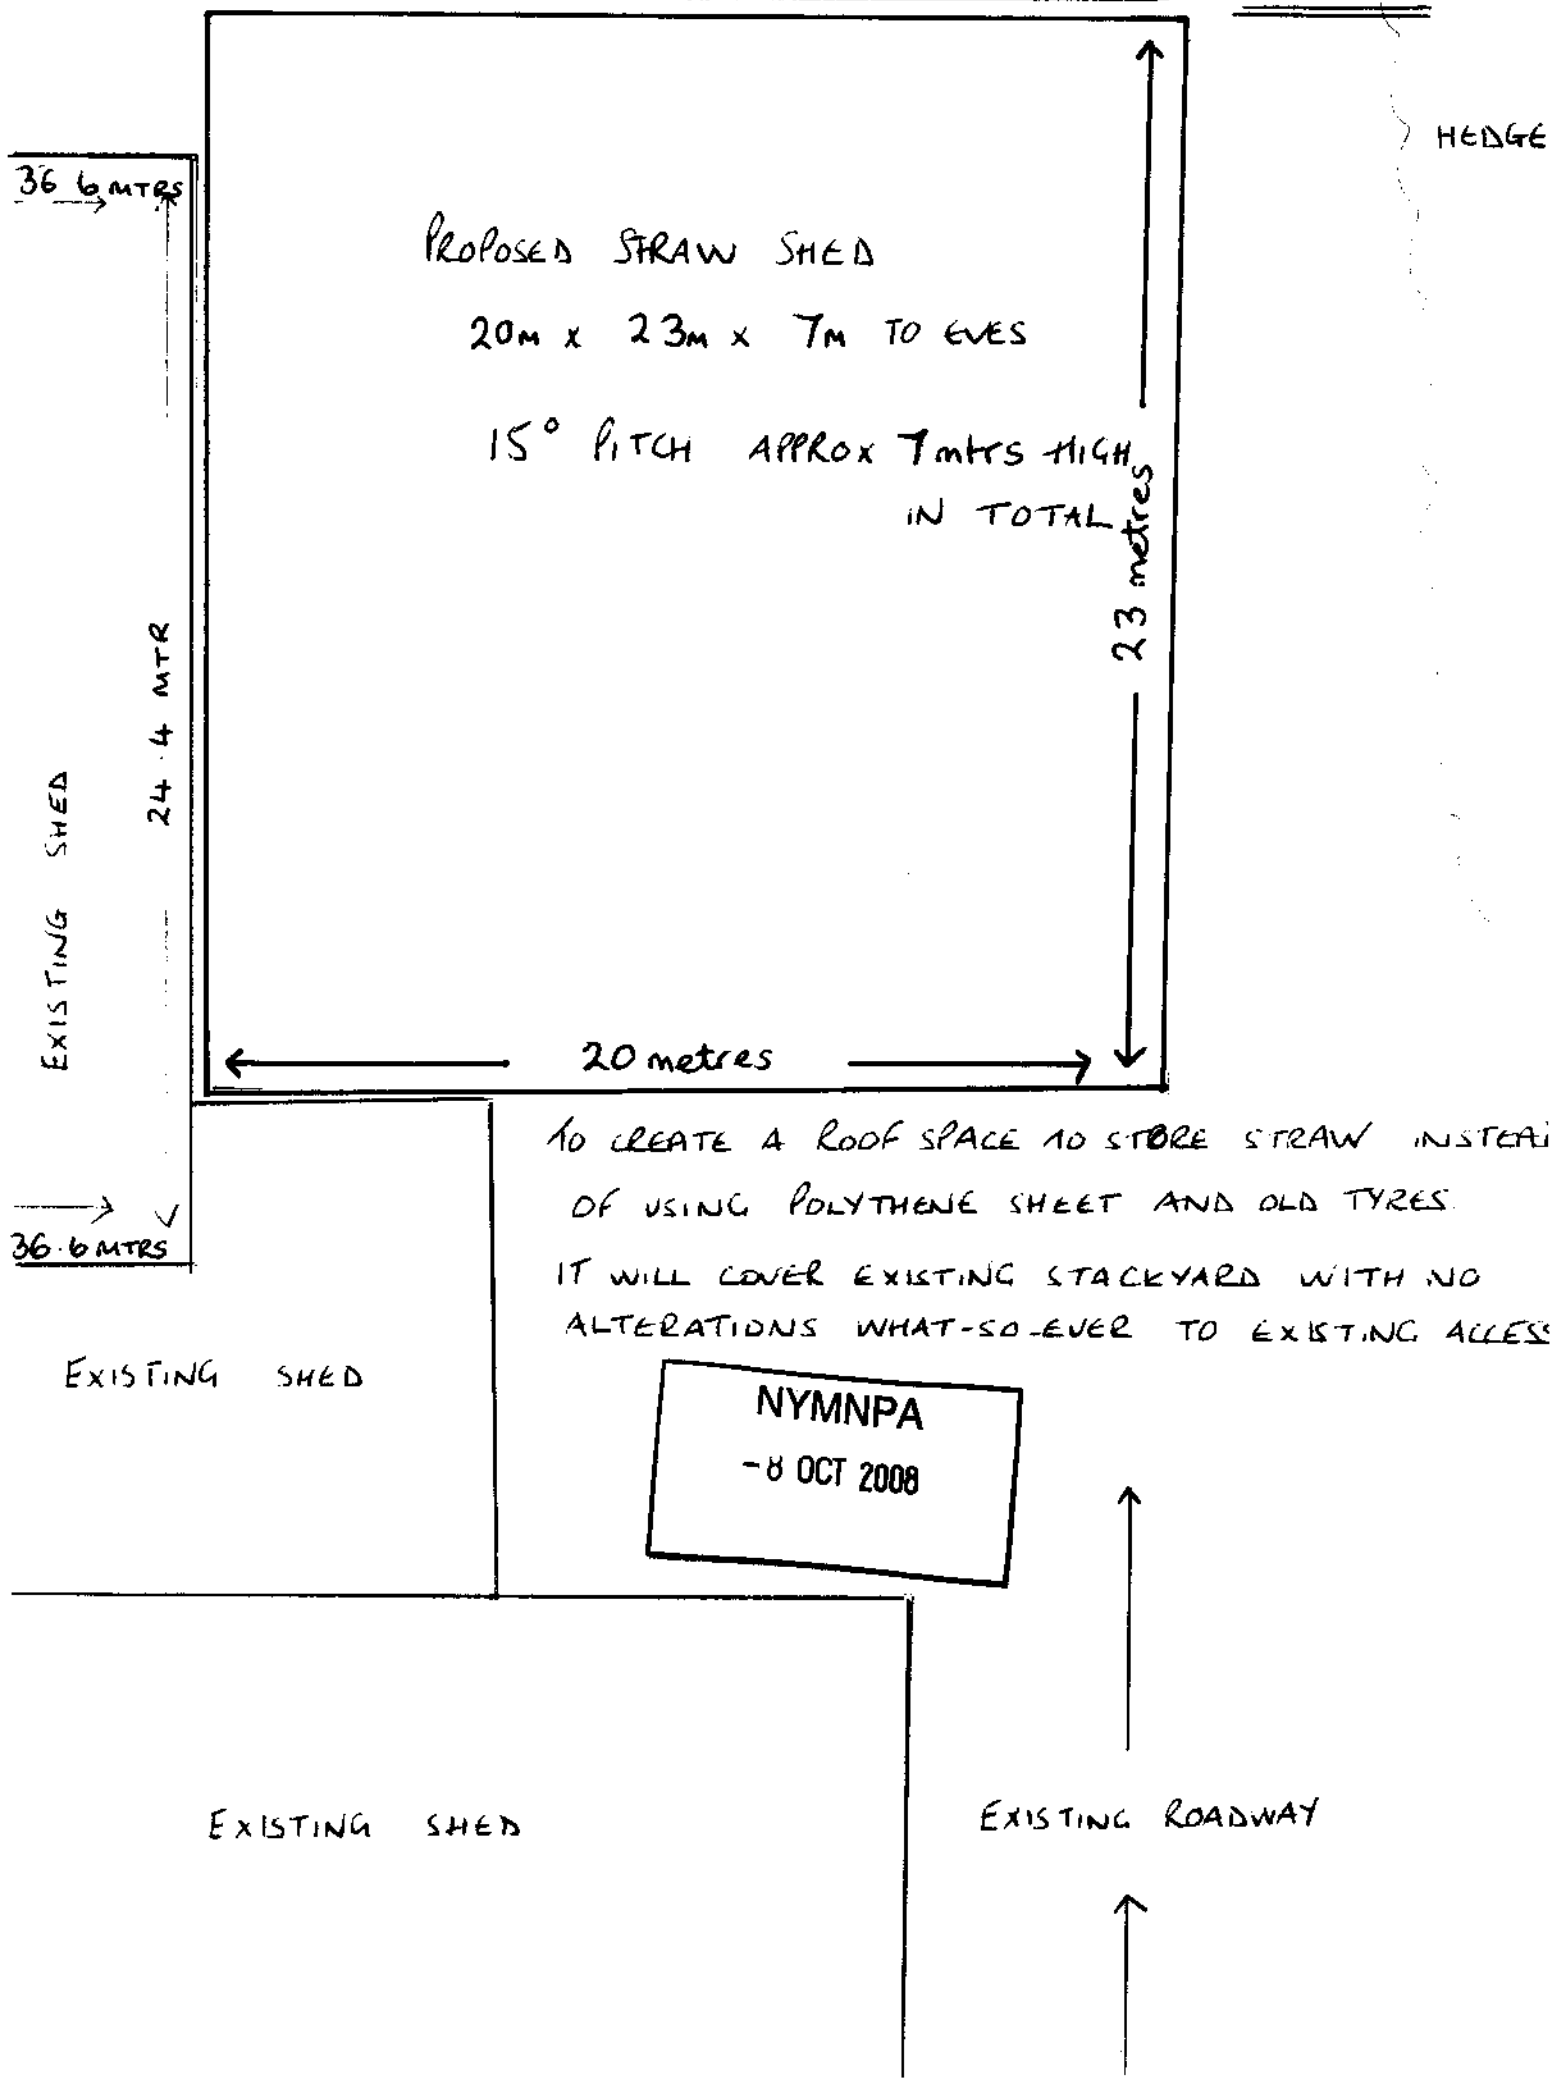 HEDGE
36 6 MTRS
PROPOSED STRAW SHED
20M x 23M x 7M TO EVES
15° PITCH APPROX 7 mtrs HIGH
IN TOTAL
23 metres
24.4 MTR
EXISTING SHED
20 metres
TO CREATE A ROOF SPACE TO STORE STRAW INSTEA
OF USING POLYTHENE SHEET AND OLD TYRES.
36.6 MTRS
IT WILL COVER EXISTING STACKYARD WITH NO
ALTERATIONS WHAT-SO-EVER TO EXISTING ACCESS
EXISTING SHED
NYMNPA
-8 OCT 2008
EXISTING SHED
EXISTING ROADWAY